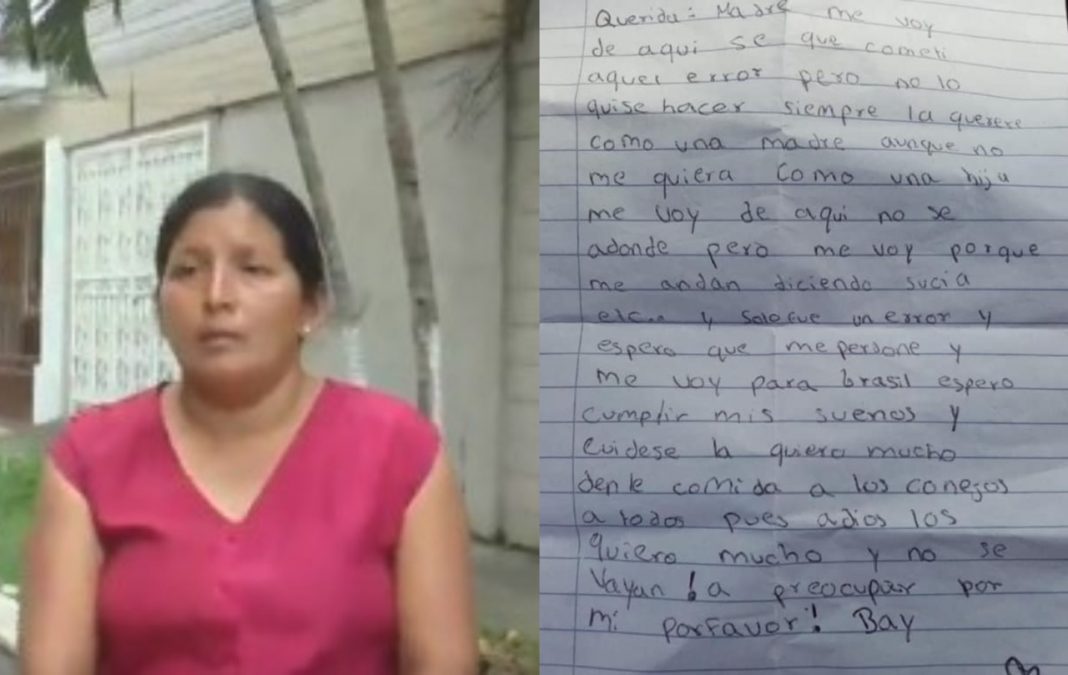 Querida: Madre me voy
de aqui se que cometi
aquel error pero no lo
quise hacer siempre la querere
como una madre aunque no
me quiera Como una hija
me voy de aqui no se
adonde pero me voy porque
me andan diciendo sucia
etc... y solo fue un error y
espero que me persone y
me voy para brasil espero
cumplir mis suenos y
cuidese la quiero mucho
denle comida a los conejos
a todos pues adios los
quiero mucho y no se
vayan ! a preocupar por
mi porfavor! Bay